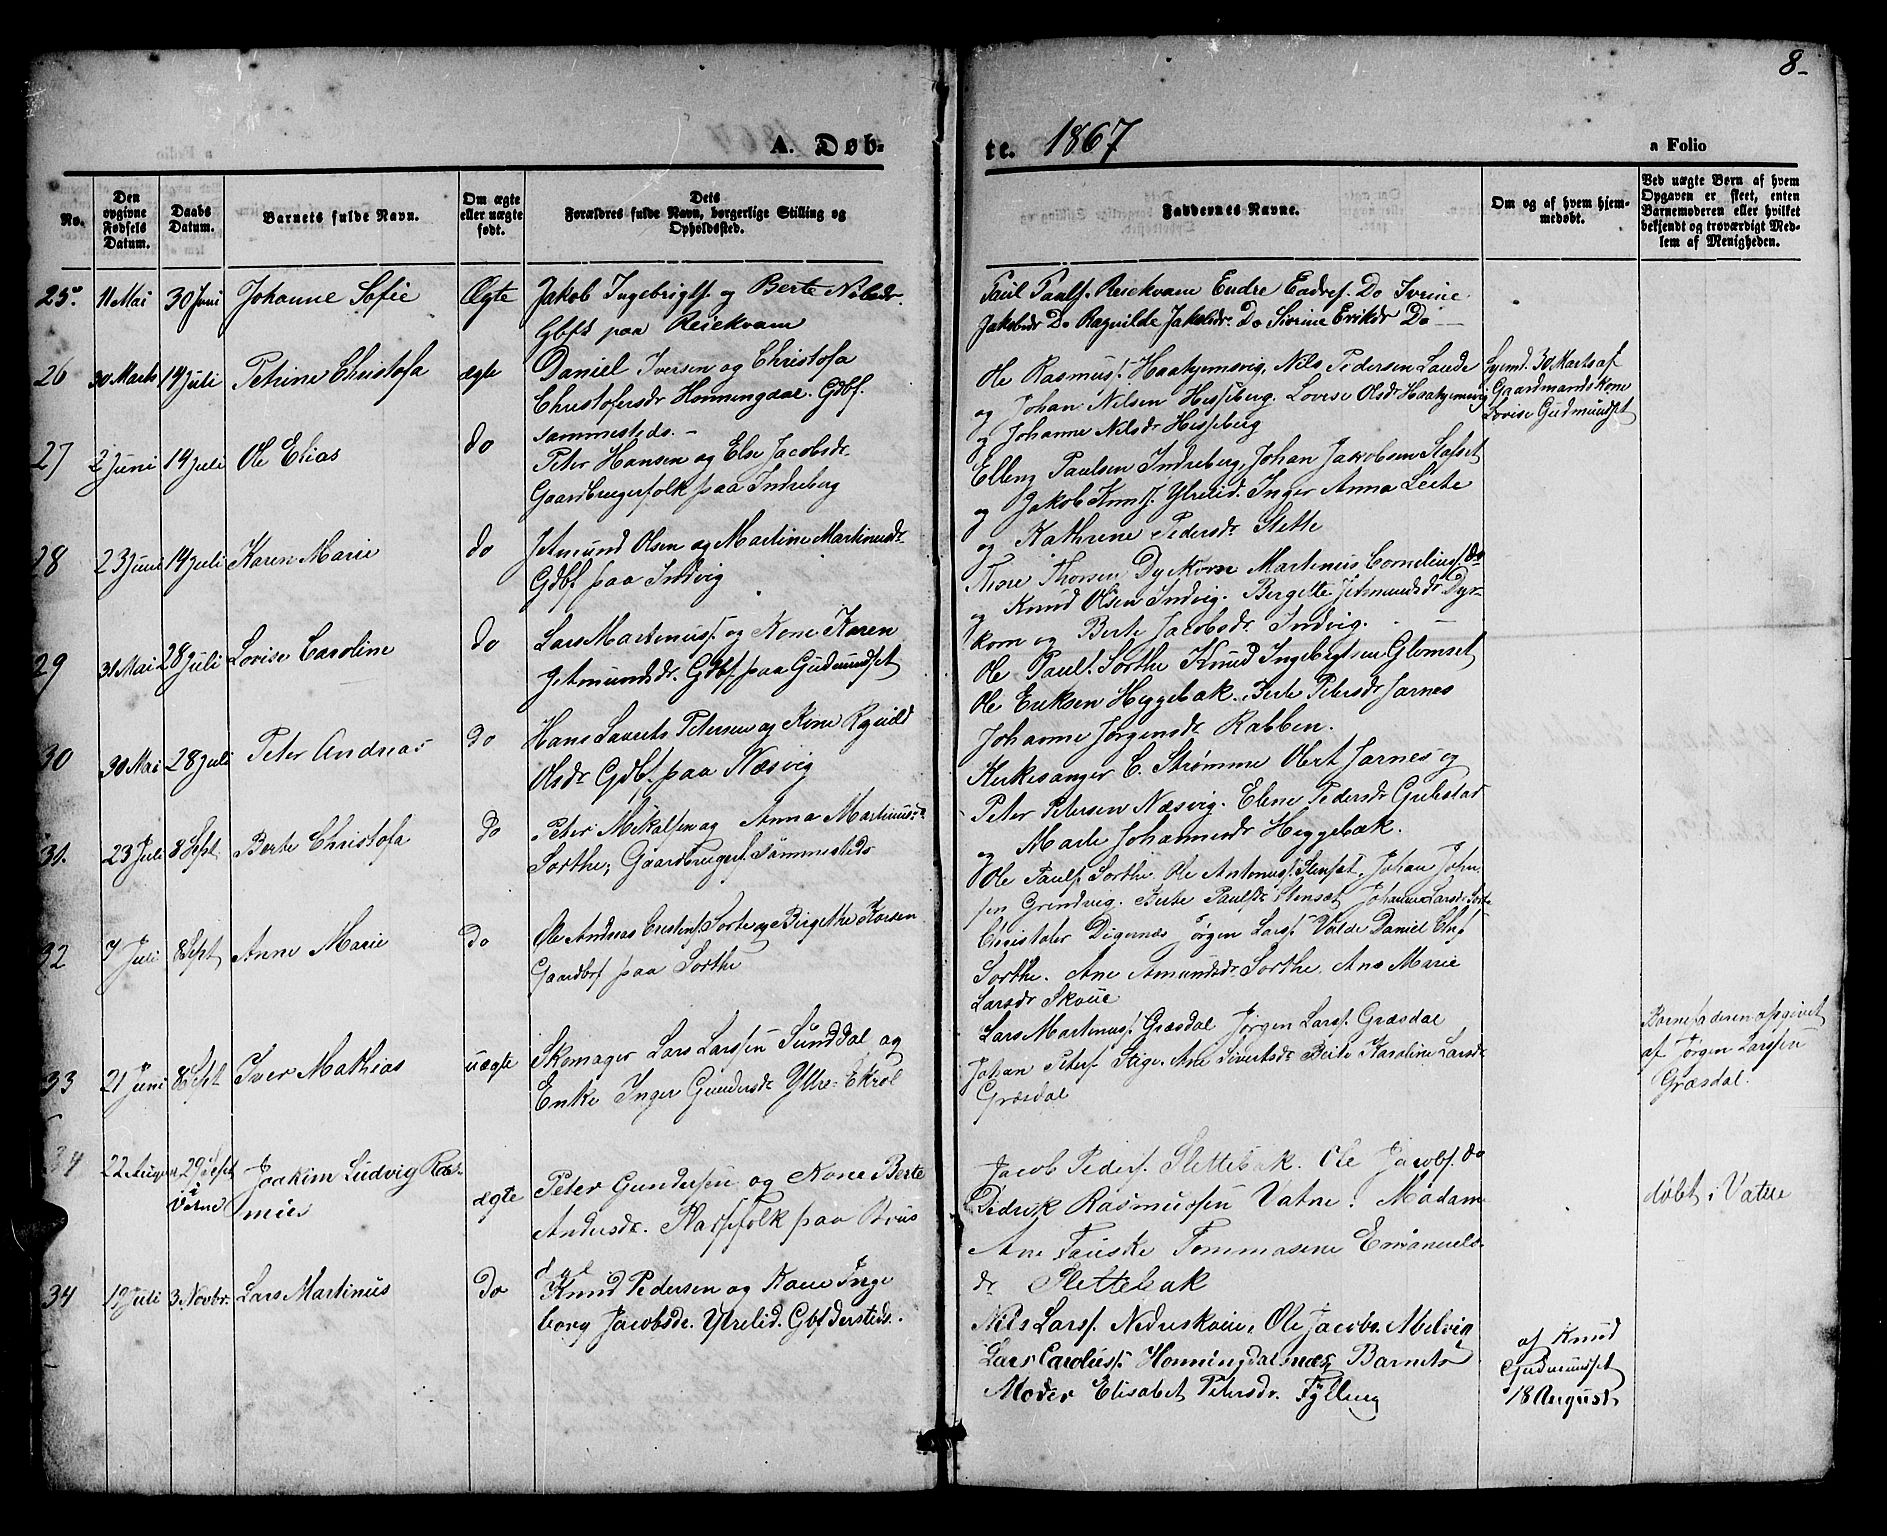 8-
A. Døb-
te. 1867
a Folio
No.
Den opgivne Fødsels Datum.
Daabs Datum.
Barnets fulde Navn.
Om ægte eller uægte født.
Dets Forældres fulde Navn, borgerlige Stilling og Opholdssted.
Faddernes Navne.
Om og af hvem hjemmedøbt.
Ved uægte Børn af hvem Opgaven er skeet, enten Barnemoderen eller hvilket bekjendt og troværdigt Medlem af Menigheden.
25. 11 Mai 30 Juni Johanne Sofie Ægte Jakob Ingebrigts. og Berte Nilsdr.
Gbfk paa Reiekvam
Paul Pauls. Reiekvam Endre Endres. Do Ivrine
Jakobsdr Do Ragnilde Jakobsdr. Do Sivrine Eriksdr Do
26 30 Marts 14 Juli Petrine Christofa ægte Daniel Iversen og Christofa
Christofersdr Honningdal. Gdbf.
sammesteds. -
Ole Rasmuss. Haahjemsvig, Nils Pedersen Lande
og Johan Nilsen Hesseberg. Lovise Olsdr Haahjemsvig
og Johanne Nilsdr Hesseberg
Hjemd. 30 Marts af
Gaardmandskone
Lovise Gudmundset
27 2 Juni 14 Juli Ole Elias do Peter Hansen og Else Jacobsdr.
Gaardbrugerfolk paa Indreberg
Elling Paulsen Indreberg, Johan Jakobsen Stafset
og Jakob Knuds. Ytrelid. Inger Anna Leite
og Kathrine Pedersdr. Slette
28 23 Juni 14 Juli Karen Marie do Jetmund Olsen og Martine Martinusdr.
Gdbf paa Indvig
Thore Thorsen Dyrkorn Martinus Corneliuss. do
og Knud Olsen Indvig. Bergette Jetmundsdr. Dyr-
korn og Berte Jacobsdr Indvig.
29 31 Mai 28 Juli Lovise Caroline do Lars Martinuss. og Kone Karen
Jetmundsdr. Gdbf. paa Gudmundset
Ole Pauls. Sorthe Knud Ingebrigtsen Glomset
Ole Eriksen Heggebak. Berte Petersdr Jarnes
Johanne Jørgensdr. Rabben.
30 30 Mai 28 Juli Peter Andreas do Hans Laurits Petersen og Kone Ragnild
Olsdr Gdbf. paa Næsvig
Kirkesanger C. Strømme Olert Jarnes og
Peter Petersen Næsvig. Elene Pedersdr Gribestad
og Marte Johannesdr Heggebæk.
31. 23 Juli 8 Sept. Berte Christofa do Peter Mikalsen og Anna Martinusdr
Sorthe, Gaardbrugerf. sammesteds
Ole Pauls. Sorthe. Ole Antonius. Stensæt. Johan John-
sen Grindvig. Berte Paulsdr Stensæt Johanne Larsd. Sorte
32 7 Juli 8 Sept Anne Marie do Ole Andreas Sorte og Birgethe Karsen
Gaardbf paa Sorthe
Christofer Digernæs Jørgen Lars. Valde Daniel
Sorthe. Ane Amundsdr. Sorthe. Ane Marie
Larsdr Skoue
33 21 Juni 8 Sept Iver Mathias uægte Skomager Lars Larsen Sunddal og
Enke Inger Gundersdr. Ytre-Ekrol
Lars Martinus. Græsdal Jørgen Lars. Græsdal
Johan Peters. Stige. Ane Sivertsdr. Berte Karoline Larsdr
Græsdal
Barnefaderen opgivet
af Jørgen Larssen
Græsdal.
34 22 August 29 Sept
i
Vatne
Joakim Ludvig Ras-
mus
ægte Peter Gundersen og Kone Berte
Andersdr. Plasfolk paa Brus
dal
Jacob Peders. Slettebak. Ole Jacobs. do
Pedrik Rasmussen Vatne. Madam
Ane Fauske Tommasine Emanuels-
dr. Slettebak
døbt i Vatne
34 19 Juli 3 Novbr. Lars Martinus do Knud Pedersen og Kone Inge
borg Jacobsdr. Ytrelid. Gbf dersteds.
Nils Lars. Nedreskoue, Ole Jacobs. Melvig
Lars Carolus. Honningdalsnæs Barnets
Moder Elisabet Petersdr. Fylling
af Knud
Gudmundset
18 August.